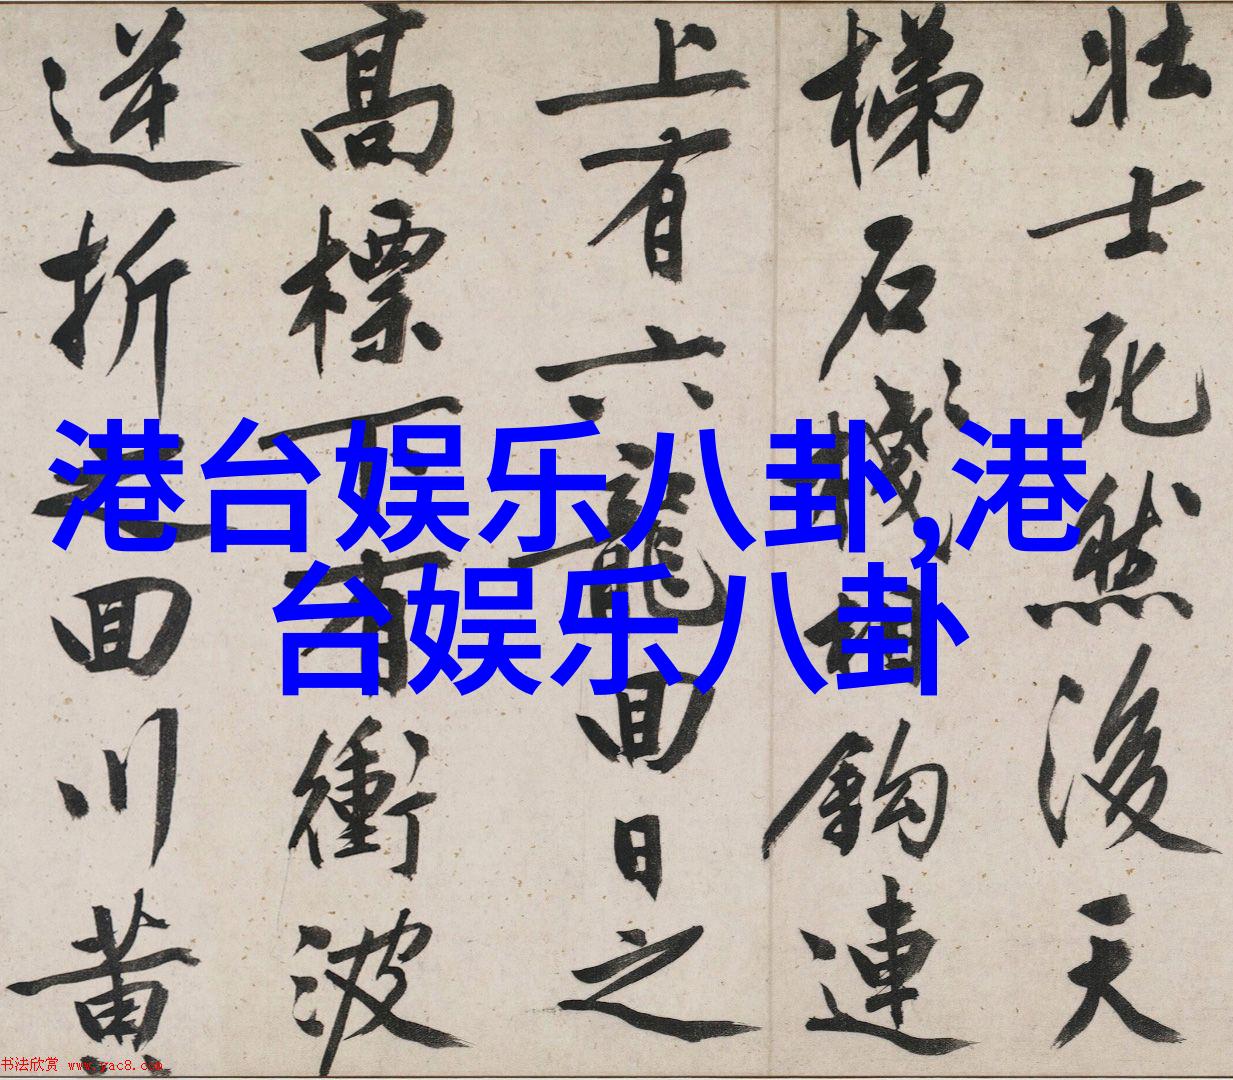 壯士死然後天
梯石棧相鈎連
上有六龍回日之
高標下有衝波
逆折之回川黃
港台娱乐八卦,港
台娱乐八卦
书法欣赏 www.yac8.com